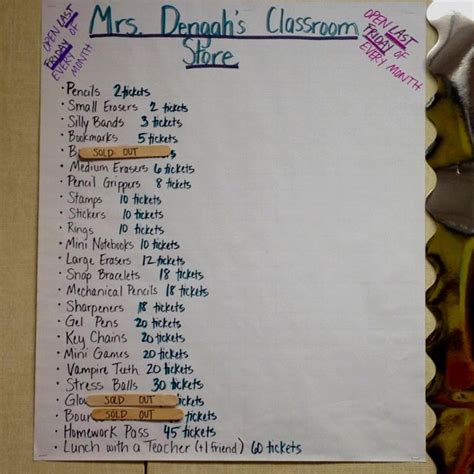 Mrs. Dengah's Classroom
Store
OPEN LAST
FRIDAY OF
EVERY MONTH
OPEN LAST
FRIDAY OF
EVERY MONTH
• Pencils 2 tickets
• Small Erasers 2 tickets
• Silly Bands 3 tickets
• Bookmarks 5 tickets
• B SOLD OUT s
• Medium Erasers 6 tickets
• Pencil Grippers 8 tickets
• Stamps 10 tickets
• Stickers 10 tickets
• Rings 10 tickets
• Mini Notebooks 10 tickets
• Large Erasers 12 tickets
• Snap Bracelets 18 tickets
• Mechanical Pencils 18 tickets
• Sharpeners 18 tickets
• Gel Pens 20 tickets
• Key Chains 20 tickets
• Mini Games 20 tickets
• Vampire Teeth 20 tickets
• Stress Balls 30 tickets
• Glo SOLD OUT ickets
• Boun SOLD OUT kets
• Homework Pass 45 tickets
• Lunch with a Teacher (+1 friend) 60 tickets